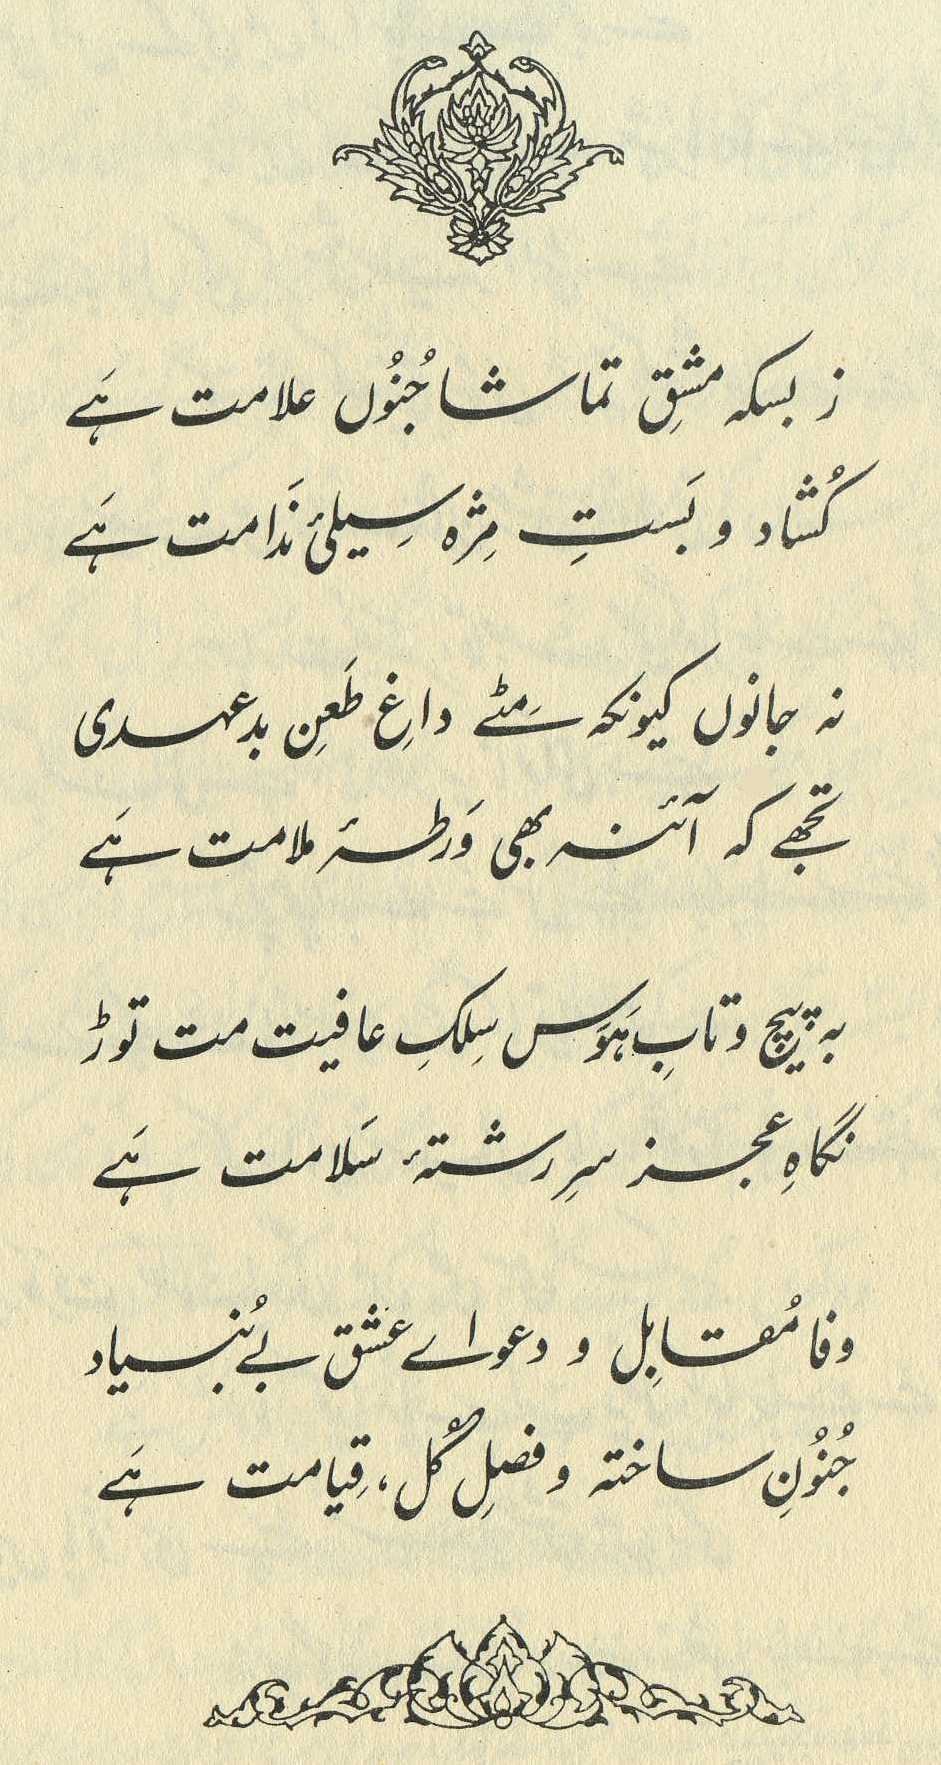 ز بسکہ مشقِ تماشا جُنُوں علامت ہَے
کُشاد و بَستِ مِژہ سِیلیٔ نَدَامت ہَے
نہ جانوں کیونکہ مِٹے داغِ طَعنِ بدعہدی
تجھے کہ آئنہ بھی وَرطۂ ملامت ہَے
بہ پیچ و تابِ ہَوَس سِلکِ عافیت مت توڑ
نگاہِ عجز سرِ رشتۂ سَلامت ہَے
وفا مُقابِل و دعواے عشق بے بُنیاد
جُنُونِ ساختہ و فصلِ گُل، قِیامت ہَے